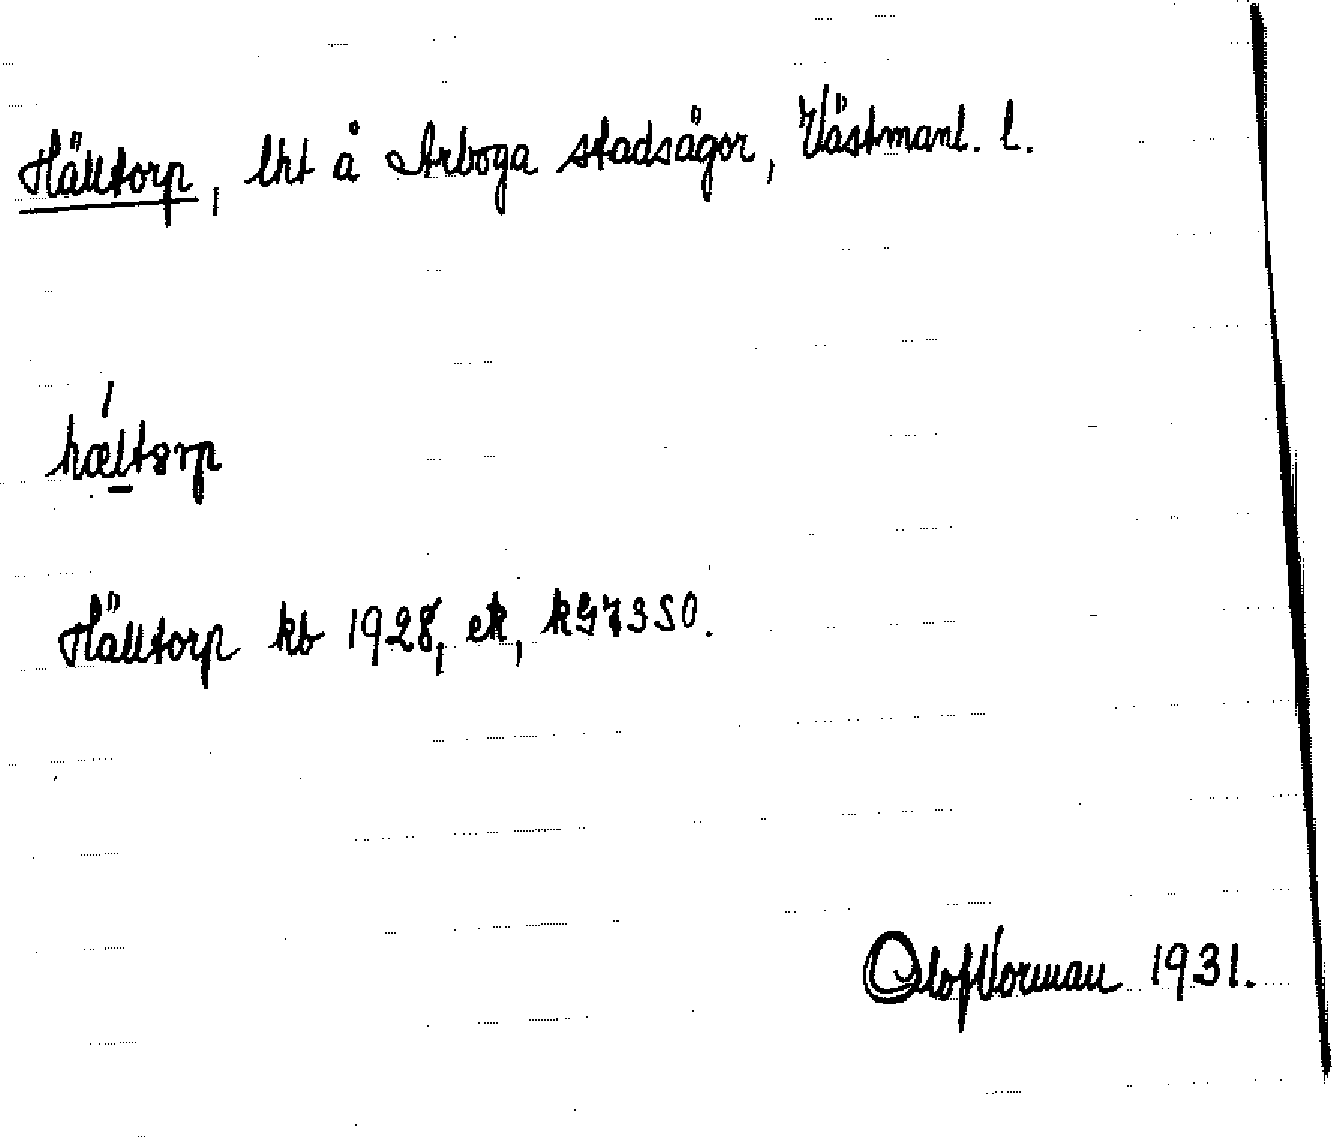 Hälltorp, lht å Arboga stadsägor, Västmanl. l.
hæltorp
Hälltorp kb 1928, ek, kG7350.
Olof Norman 1931.